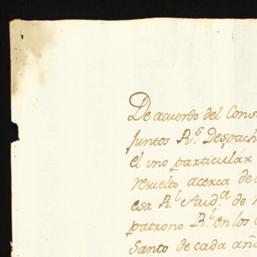 De acuerdo del Cons
juntos R.s Despach
el uno particular
resuelto acerca de
esa R.l Aud.a de
patrono R.l en los
Santo de cada año